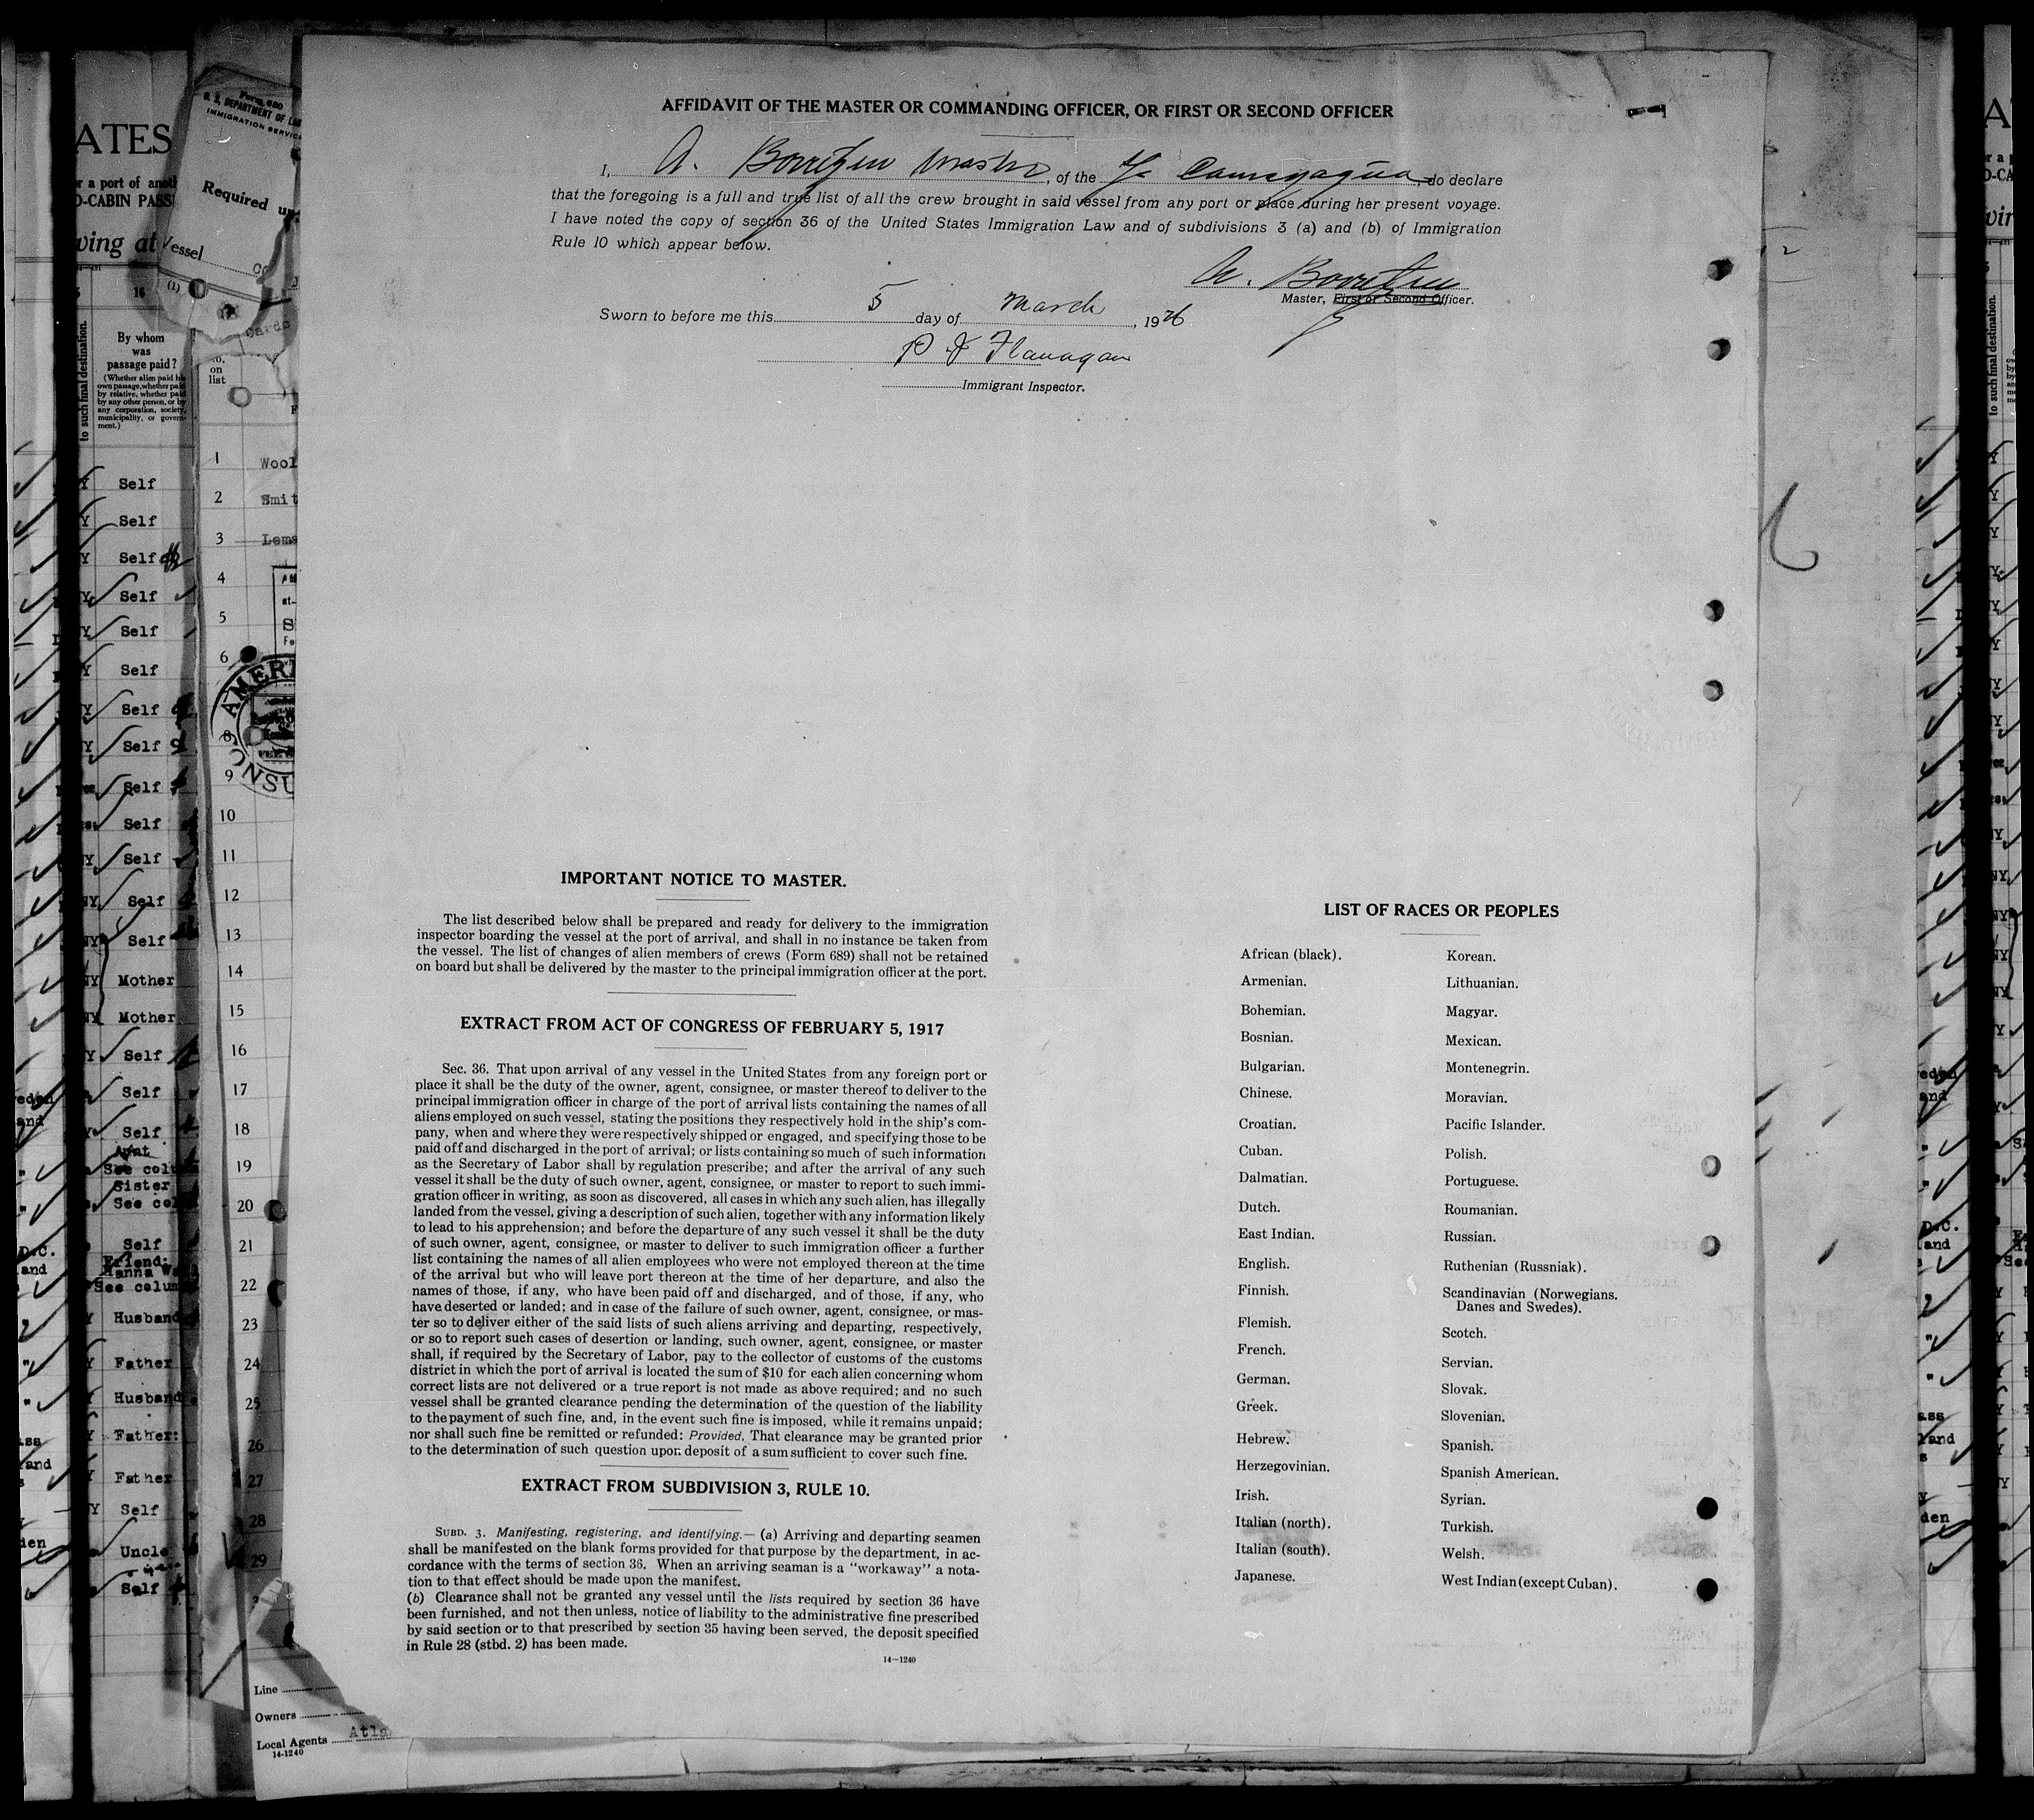 AFFIDAVIT OF THE MASTER OR COMMANDING OFFICER, OR FIRST OR SECOND OFFICER
I, A. master, of the do declare
that the foregoing is a full and true list of all the crew brought in said vessel from any port or place during her present voyage.
I have noted the copy of section 36 of the United States Immigration Law and of subdivisions 3 (a) and (b) of Immigration
Rule 10 which appear below.
Master, First or Second Officer.
Sworn to before me this 5 day of March, 1926
P J Flanagan
Immigrant Inspector.
IMPORTANT NOTICE TO MASTER.
The list described below shall be prepared and ready for delivery to the immigration
inspector boarding the vessel at the port of arrival, and shall in no instance be taken from
the vessel. The list of changes of alien members of crews (Form 689) shall not be retained
on board but shall be delivered by the master to the principal immigration officer at the port.
EXTRACT FROM ACT OF CONGRESS OF FEBRUARY 5, 1917
Sec. 36. That upon arrival of any vessel in the United States from any foreign port or
place it shall be the duty of the owner, agent, consignee, or master thereof to deliver to the
principal immigration officer in charge of the port of arrival lists containing the names of all
aliens employed on such vessel, stating the positions they respectively hold in the ship's com-
pany, when and where they were respectively shipped or engaged, and specifying those to be
paid off and discharged in the port of arrival; or lists containing so much of such information
as the Secretary of Labor shall by regulation prescribe; and after the arrival of any such
vessel it shall be the duty of such owner, agent, consignee, or master to report to such immi-
gration officer in writing, as soon as discovered, all cases in which any such alien, has illegally
landed from the vessel, giving a description of such alien, together with any information likely
to lead to his apprehension; and before the departure of any such vessel it shall be the duty
of such owner, agent, consignee, or master to deliver to such immigration officer a further
list containing the names of all alien employees who were not employed thereon at the time
of the arrival but who will leave port thereon at the time of her departure, and also the
names of those, if any, who have been paid off and discharged, and of those, if any, who
have deserted or landed; and in case of the failure of such owner, agent, consignee, or mas-
ter so to deliver either of the said lists of such aliens arriving and departing, respectively,
or so to report such cases of desertion or landing, such owner, agent, consignee, or master
shall, if required by the Secretary of Labor, pay to the collector of customs of the customs
district in which the port of arrival is located the sum of $10 for each alien concerning whom
correct lists are not delivered or a true report is not made as above required; and no such
vessel shall be granted clearance pending the determination of the question of the liability
to the payment of such fine, and, in the event such fine is imposed, while it remains unpaid;
nor shall such fine be remitted or refunded: Provided, That clearance may be granted prior
to the determination of such question upon deposit of a sum sufficient to cover such fine.
EXTRACT FROM SUBDIVISION 3, RULE 10.
SUBD. 3. Manifesting, registering, and identifying.— (a) Arriving and departing seamen
shall be manifested on the blank forms provided for that purpose by the department, in ac-
cordance with the terms of section 36. When an arriving seaman is a "workaway" a nota-
tion to that effect should be made upon the manifest.
(b) Clearance shall not be granted any vessel until the lists required by section 36 have
been furnished, and not then unless, notice of liability to the administrative fine prescribed
by said section or to that prescribed by section 35 having been served, the deposit specified
in Rule 28 (stbd. 2) has been made.
14—1240
LIST OF RACES OR PEOPLES
African (black).
Armenian.
Bohemian.
Bosnian.
Bulgarian.
Chinese.
Croatian.
Cuban.
Dalmatian.
Dutch.
East Indian.
English.
Finnish.
Flemish.
French.
German.
Greek.
Hebrew.
Herzegovinian.
Irish.
Italian (north).
Italian (south).
Japanese.
Korean.
Lithuanian.
Magyar.
Mexican.
Montenegrin.
Moravian.
Pacific Islander.
Polish.
Portuguese.
Roumanian.
Russian.
Ruthenian (Russniak).
Scandinavian (Norwegians.
Danes and Swedes).
Scotch.
Servian.
Slovak.
Slovenian.
Spanish.
Spanish American.
Syrian.
Turkish.
Welsh.
West Indian (except Cuban).
ATES
wing at
16
By whom
was
passage paid?
to such final destination.
Self
Self
Self
Self
Self
Self
Self
Self
Self
Self
Self
Self
Self
Mother
Mother
Self
Self
Self
Aunt
Sister
Self
Friend:
Husband
Father
Husband
Father:
Father
Self
Uncle
Self
IMMIGRATION SERVICE
Required
Vessel
(1)
on
list
1
2
3
4
5
6
8
9
10
11
12
13
14
15
16
17
18
19
20
21
22
23
24
25
26
27
28
29
Line
Owners
Local Agents
14-1240